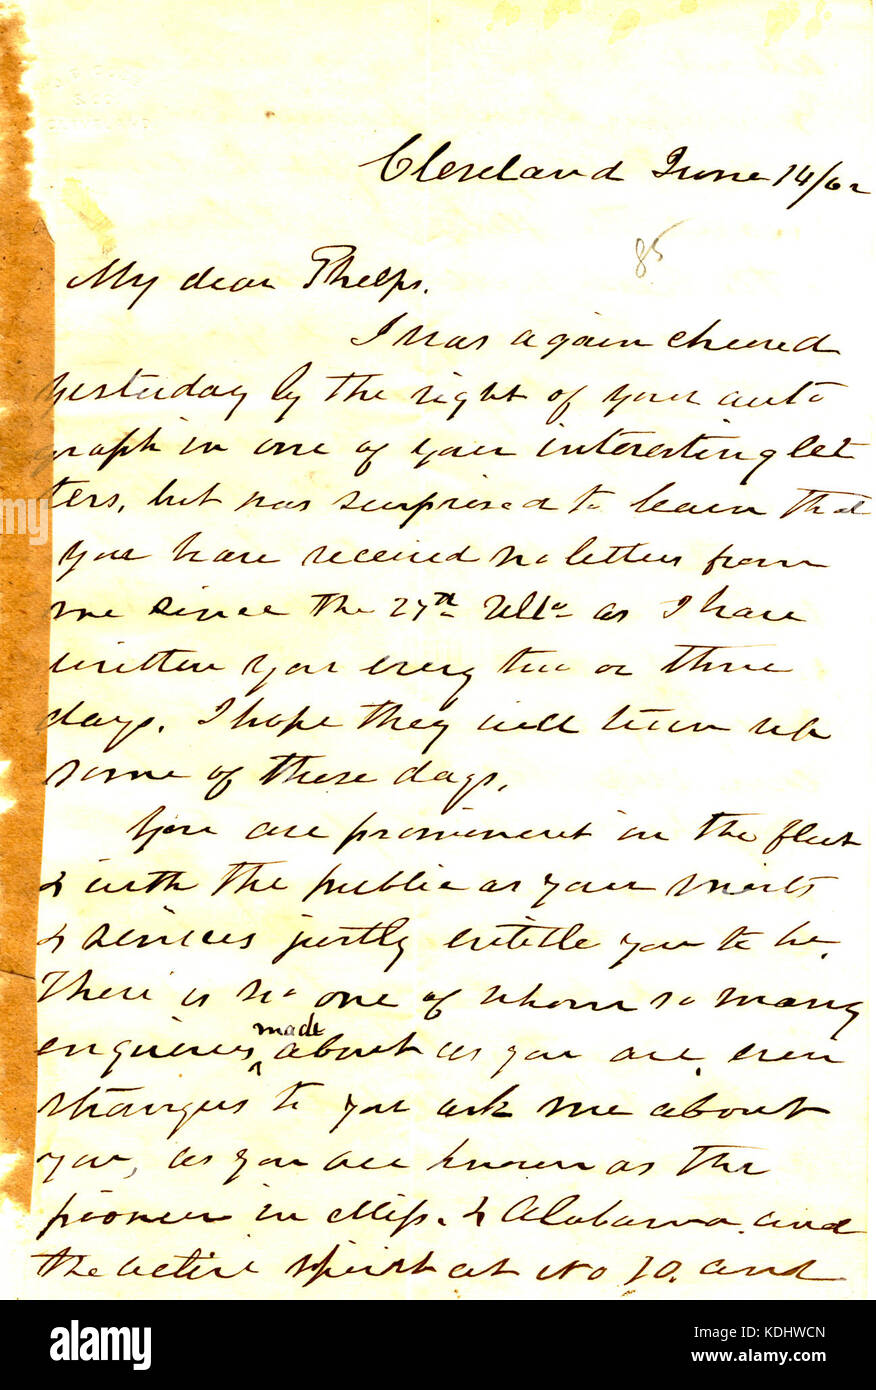 Cleveland June 14/62
85
My dear Phelps.
I was again cheered
yesterday by the sight of your auto
graph in one of your interesting let
ters, but was surprised to learn that
you have received no letters from
me since the 27th Ulto as I have
written you every two or three
days. I hope they will turn up
some of these days.
You are prominent in the fleet
& with the public as your merits
& services justly entitle you to be.
There is no one of whom so many
enquiries ^made about as you are, even
strangers to you ask me about
you, as you are known as the
pioneer in Miss. & Alabama and
the active spirit at No 10. and
alamy
alamy
Image ID: KDHWCN
www.alamy.com